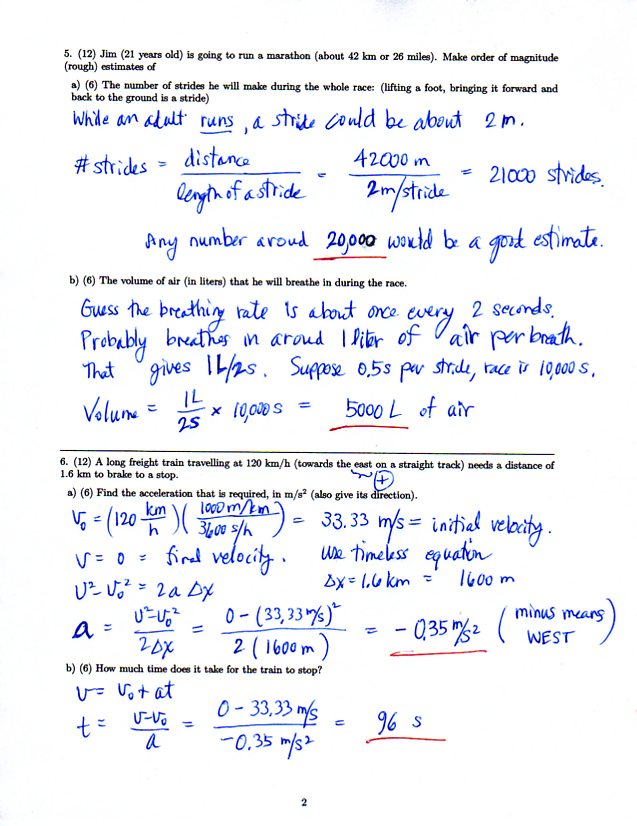 5. (12) Jim (21 years old) is going to run a marathon (about 42 km or 26 miles). Make order of magnitude
(rough) estimates of
a) (6) The number of strides he will make during the whole race: (lifting a foot, bringing it forward and
back to the ground is a stride)
While an adult runs, a stride could be about 2 m.
# strides = distance / length of a stride = 42000 m / 2m/stride = 21000 strides.
Any number aroud 20,000 would be a good estimate.
b) (6) The volume of air (in liters) that he will breathe in during the race.
Guess the breathing rate is about once every 2 seconds.
Probably breathes in aroud 1 liter of air per breath.
That gives 1L/2s. Suppose 0.5s per stride, race is 10,000 s.
Volume = 1L / 2s × 10,000 s = 5000 L of air
6. (12) A long freight train travelling at 120 km/h (towards the east on a straight track) needs a distance of
1.6 km to brake to a stop.
+
a) (6) Find the acceleration that is required, in m/s² (also give its direction).
V₀ = (120 km/h)(1000 m/km / 3600 s/h) = 33.33 m/s = initial velocity.
V = 0 = final velocity. Use timeless equation
v² - v₀² = 2a Δx Δx = 1.6 km = 1600 m
a = v²-v₀² / 2Δx = 0 - (33,33 m/s)² / 2(1600 m) = -0,35 m/s² (minus means WEST)
b) (6) How much time does it take for the train to stop?
v = v₀ + at
t = v-v₀ / a = 0 - 33,33 m/s / -0.35 m/s² = 96 s
2